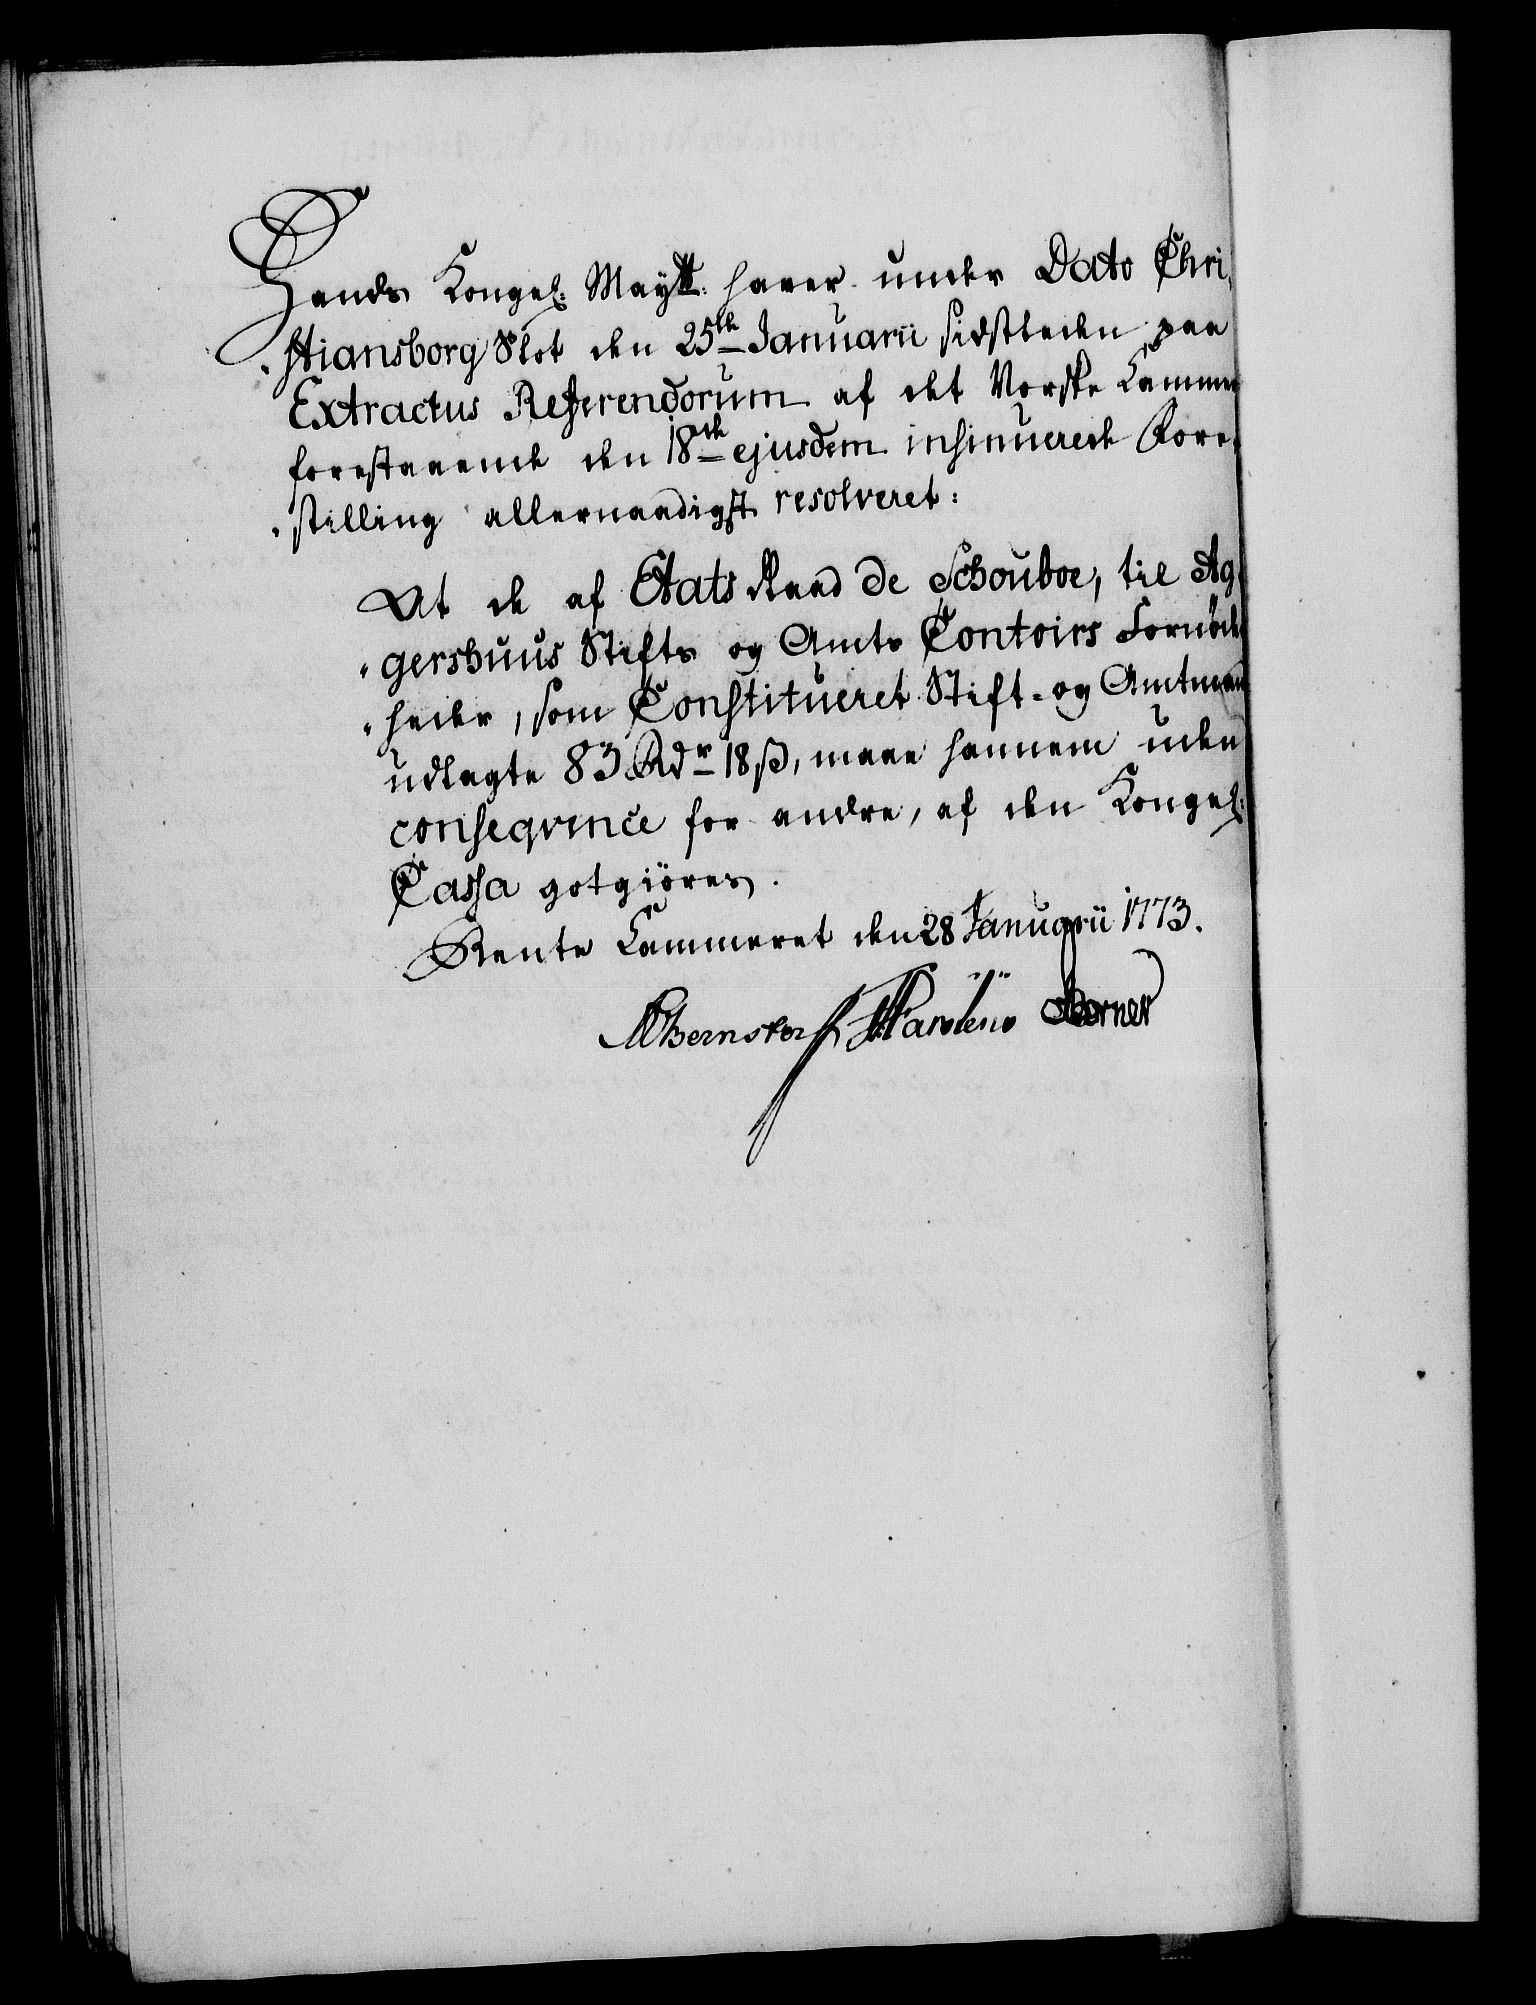 Hands Kongel: Maytt: haver under Dato Chri,
,stiansborg Slot den 25de Januarii sidstleden paa
Extractus Referendorum af det Norske Kammer
forestaaende den 18de ejusdem insinuerede Fore,
,stilling allernaadigst resolveret:
At de af Etats Raad de Schouboe, til Ag,
,gershuus Stifts og Amts Contoirs Fornöden
,heder, som Constitueret Stift- og Amtmand
udlagte 83 Rdr 18 β, maae hannem uden
conseqvence for andre, af den Kongel:
Cassa gotgiöres.
Rente Kammeret den 28 Januarii 1773.
Bernstorff